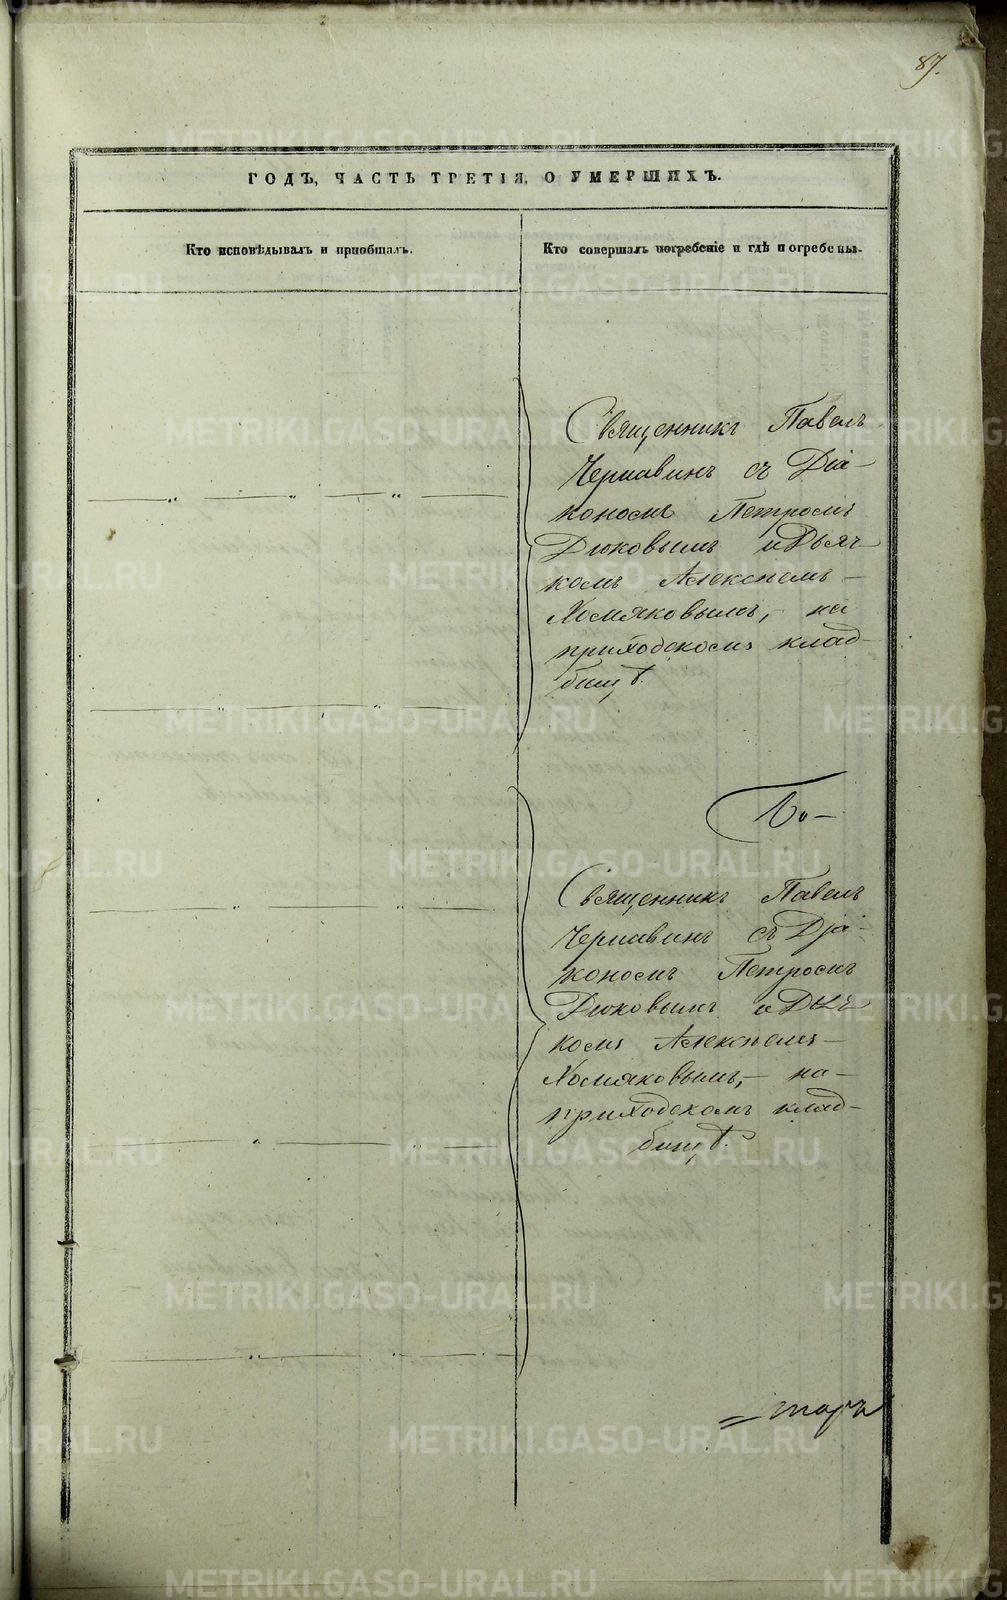 87.
ГОДЪ, ЧАСТЬ ТРЕТІЯ, О УМЕРШИХЪ.
Кто исповѣдывалъ и приобщалъ.
Кто совершалъ погребеніе и гдѣ погребены.
Священникъ Павелъ
Чернавинъ съ Діа-
кономъ Петромъ
Дюковымъ и Дьяч-
комъ Алексѣемъ
Хомяковымъ, на
приходскомъ клад-
бищѣ.
Священникъ Павелъ
Чернавинъ съ Діа-
кономъ Петромъ
Дюковымъ и Дьяч-
комъ Алексѣемъ
Хомяковымъ, на
приходскомъ клад-
бищѣ.
METRIKI.GASO-URAL.RU